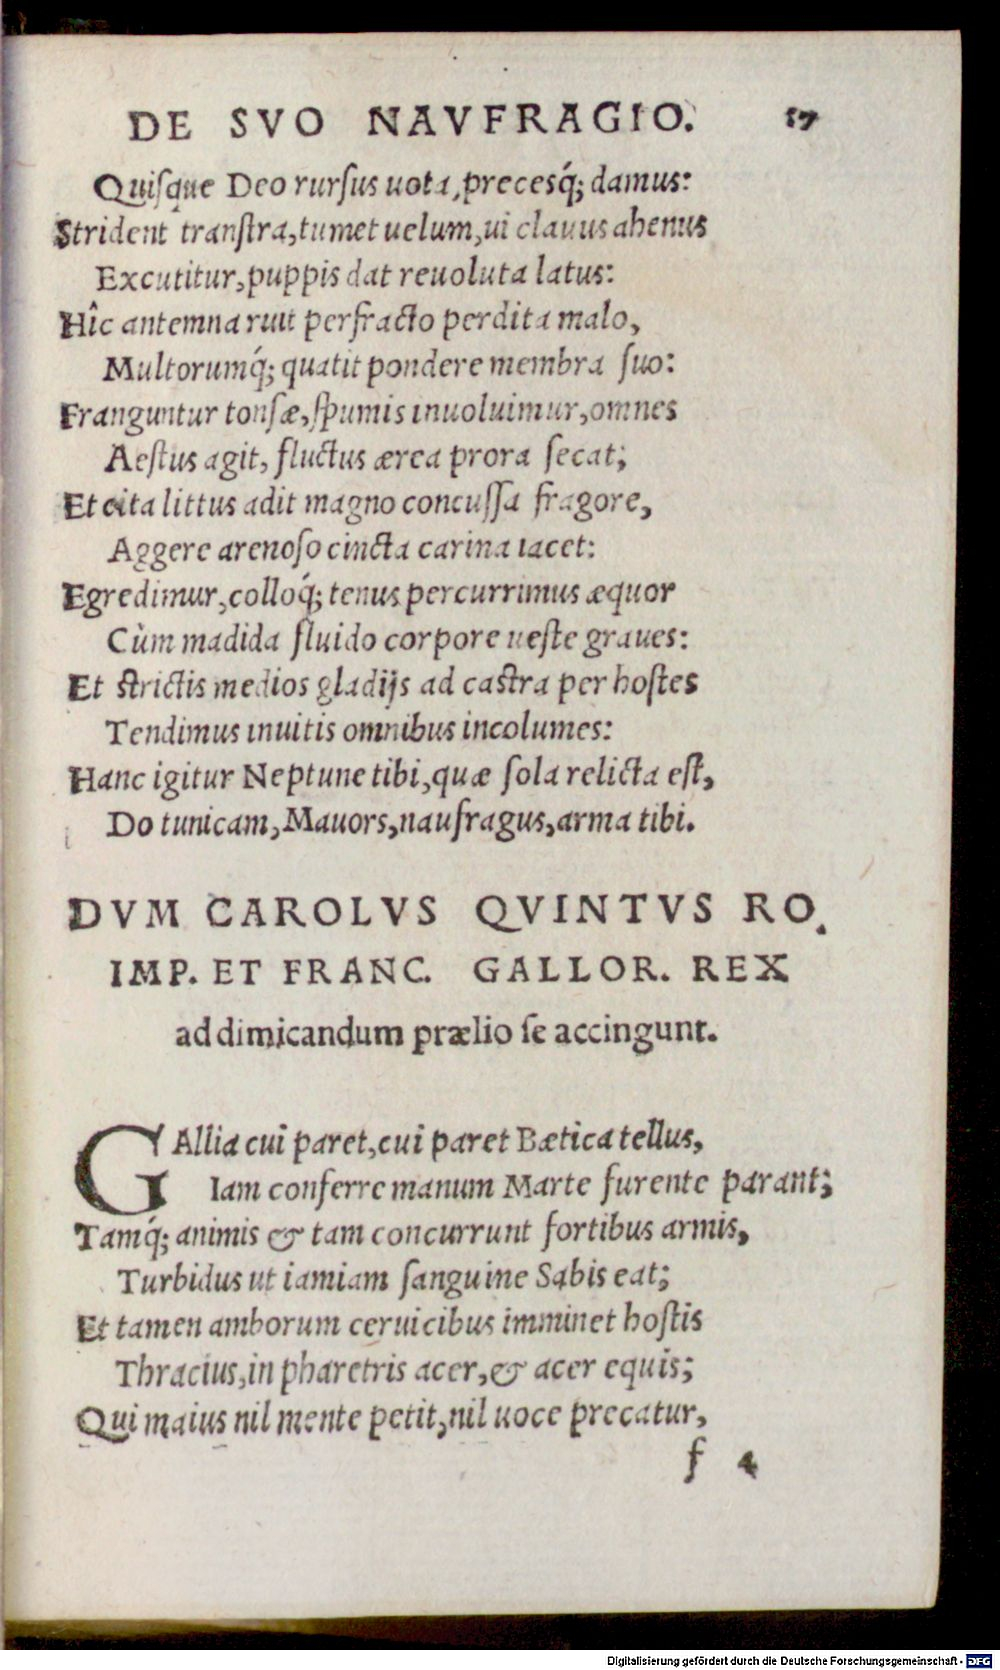 DE SVO NAVFRAGIO. 17
Quiſque Deo rurſus uota, precesq́; damus:
Strident tranſtra, tumet uelum, ui clauus ahenus
Excutitur, puppis dat reuoluta latus:
Hîc antemna ruit perfracto perdita malo,
Multorumq́; quatit pondere membra ſuo:
Franguntur tonſæ, ſpumis inuoluimur, omnes
Aeſtus agit, fluctus ærea prora ſecat;
Et cita littus adit magno concuſſa fragore,
Aggere arenoſo cincta carina iacet:
Egredimur, colloq́; tenus percurrimus æquor
Cùm madida fluido corpore ueſte graues:
Et ſtrictis medios gladijs ad caſtra per hoſtes
Tendimus inuitis omnibus incolumes:
Hanc igitur Neptune tibi, quæ ſola relicta eſt,
Do tunicam, Mauors, naufragus, arma tibi.
DVM CAROLVS QVINTVS RO.
IMP. ET FRANC. GALLOR. REX
ad dimicandum prælio ſe accingunt.
GAllia cui paret, cui paret Bætica tellus,
Iam conferre manum Marte furente parant;
Tamq́; animis & tam concurrunt fortibus armis,
Turbidus ut iamiam ſanguine Sabis eat;
Et tamen amborum ceruicibus imminet hoſtis
Thracius, in pharetris acer, & acer equis;
Qui maius nil mente petit, nil uoce precatur,
f 4
Digitalisierung gefördert durch die Deutsche Forschungsgemeinschaft - DFG